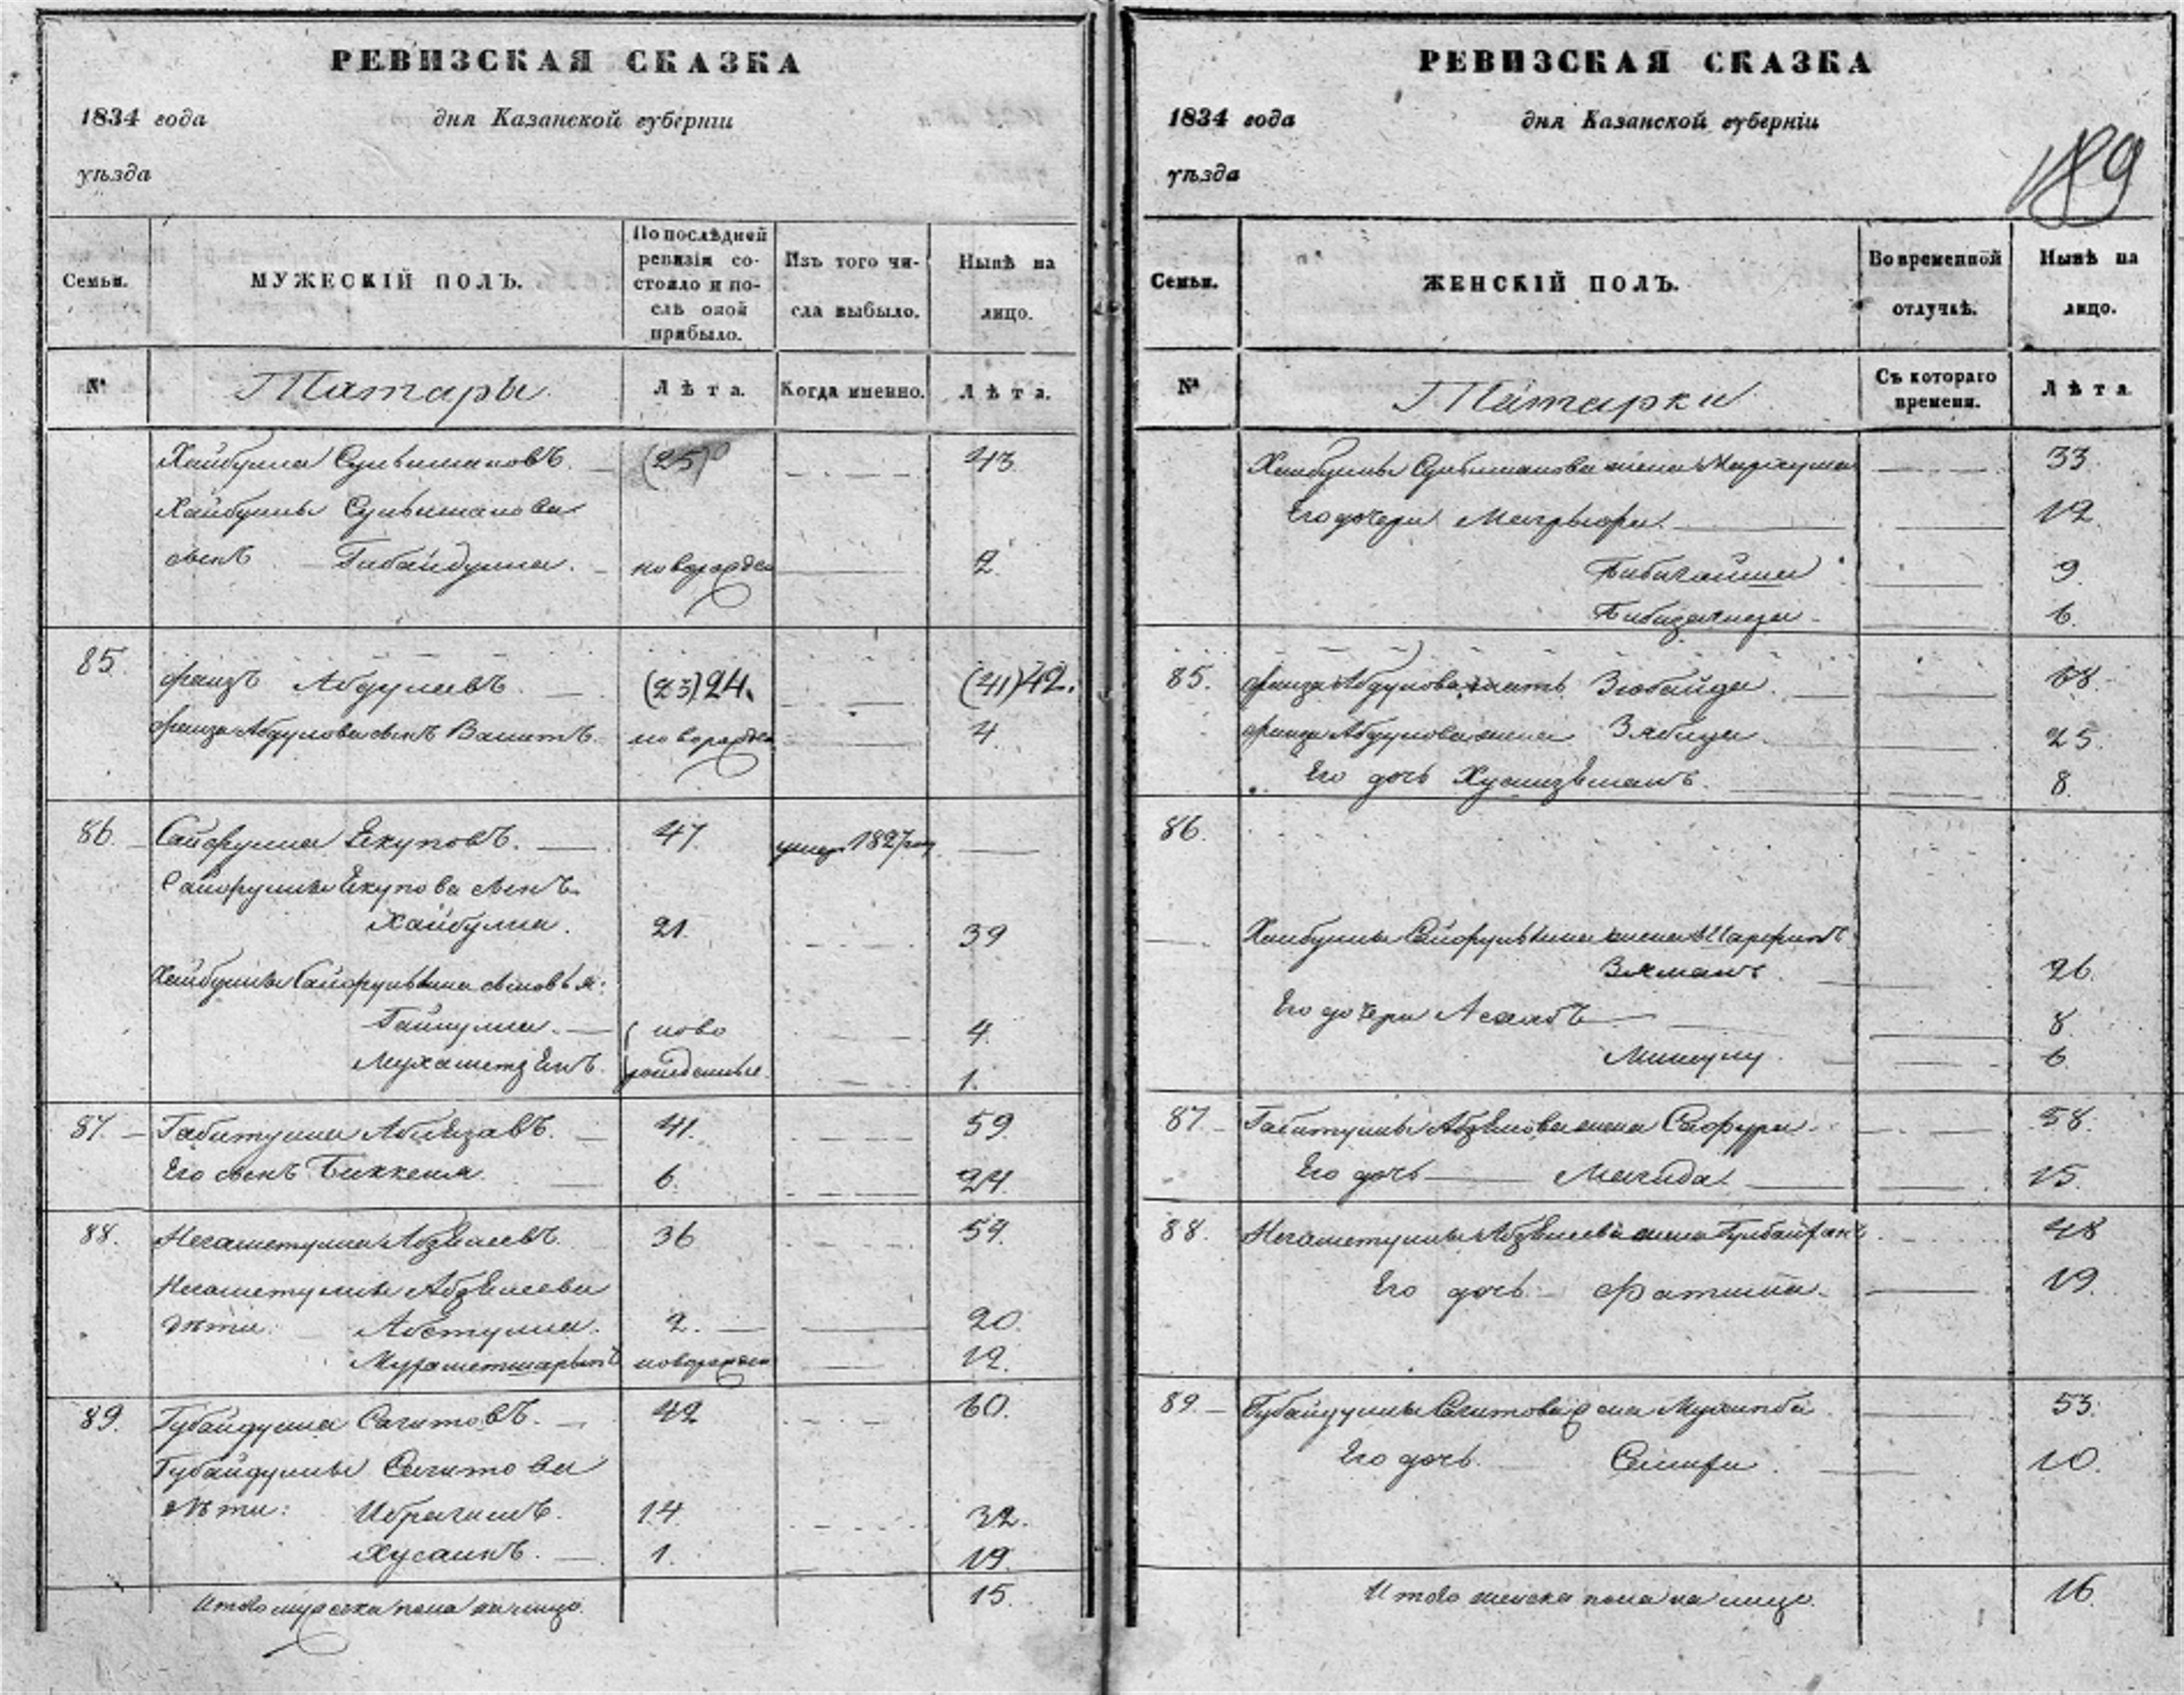 РЕВИЗСКАЯ СКАЗКА
1834 года дня Казанской губерніи
уѣзда
Семьи. МУЖЕСКІЙ ПОЛЪ. По послѣдней ревизіи состояло и послѣ оной прибыло. Изъ того числа выбыло. Нынѣ на лицо.
№ Татары Лѣта. Когда именно. Лѣта.
Хайбулла Сулеймановъ (25) 43
Хайбуллы Сулейманова
сынъ Гибайдулла. новорожден 2.
85. Фаизъ Абдулевъ. (23) 24. (41) 42.
Фаиза Абдулова сынъ новорожден 4.
86. Сайфулла Якуповъ. 47 умер 1827 году
Сайфуллы Якупова сынъ
Хайбулла. 21. 39
Хайбуллы Сайфульина сыновья:
ново 4.
Мухаметзянъ. рожденные. 1.
87. Габитулла 41. 59
Его сынъ Биккеня. 6. 24.
88. Негаметулла 36 54.
Негаметуллы
дѣти: 2. 20.
новорожден 12.
89. Губайдулла Сагитовъ. 42 60.
Губайдуллы Сагитова
дѣти: Ибрагимъ. 14. 32.
Хусаинъ. 1. 19.
Итого мужеска пола на лицо. 15.
РЕВИЗСКАЯ СКАЗКА
1834 года дня Казанской губерніи
уѣзда
189
Семьи. ЖЕНСКІЙ ПОЛЪ. Во временной отлучкѣ. Нынѣ на лицо.
№ Татарки Съ котораго времени. Лѣта.
Хайбуллы Сулейманова жена 33.
Его дочери 12.
Бибигайша 9.
6.
85. Фаиза Абдулова мать Зюбайда. 68.
Фаиза Абдулова жена 25.
Его дочь 8.
86.
Хайбуллы Сайфульина жена
Зяманъ. 26.
Его дочери 8.
6.
87. Габитуллы жена Сафура. 58.
Его дочь Магида. 15.
88. Негаметуллы жена 48
Его дочь Фатима. 19.
89. Губайдуллы Сагитова жена 53.
Его дочь 10.
Итого женска пола на лицо. 16.